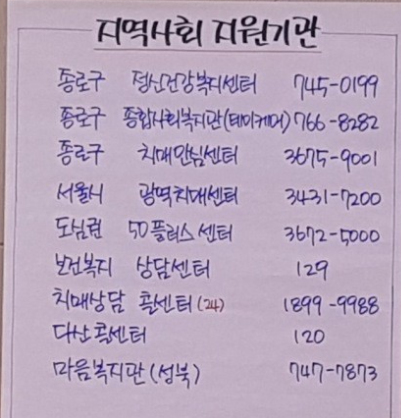 지역사회 지원기관
종로구 정신건강복지센터 745-0199
종로구 종합사회복지관(데이케어) 766-8282
종로구 치매안심센터 3675-9001
서울시 광역치매센터 3431-7200
도심권 50플러스센터 3672-5000
보건복지 상담센터 129
치매상담 콜센터(24) 1899-9988
다산콜센터 120
마음복지관(성북) 747-7873